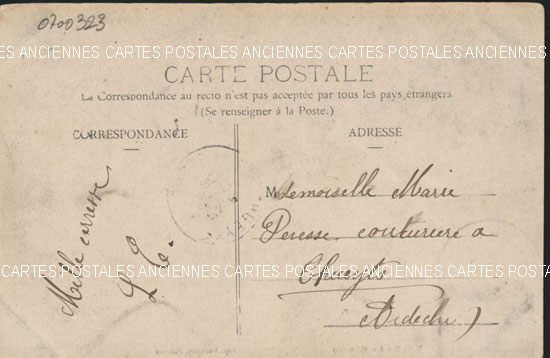 0700323
CARTES POSTALES ANCIENNES CARTES POSTALES ANCIENNES CARTES POSTALES
CARTE POSTALE
La Correspondance au recto n'est pas acceptée par tous les pays étrangers
(Se renseigner à la Poste.)
CORRESPONDANCE
Mille caresse
L. C.
ADRESSE
Mademoiselle Marie
couturiere a
(Ardèche)
CARTES POSTALES ANCIENNES CARTES POSTALES ANCIENNES CARTES POSTALES